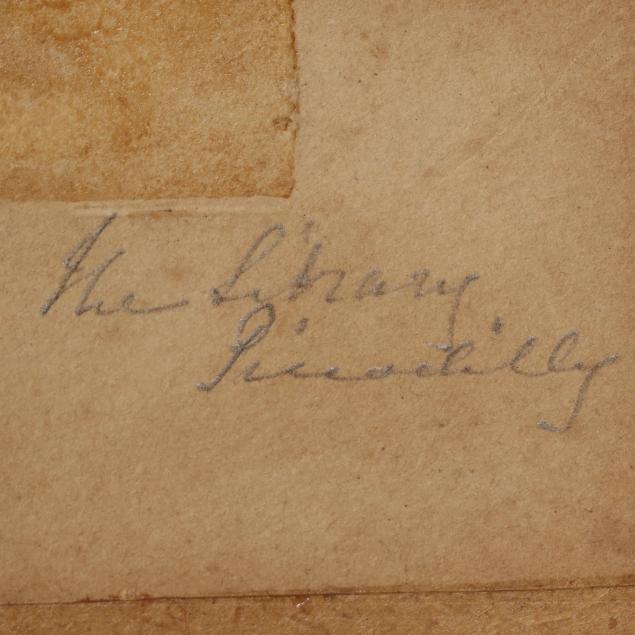 The Library
Piccadilly